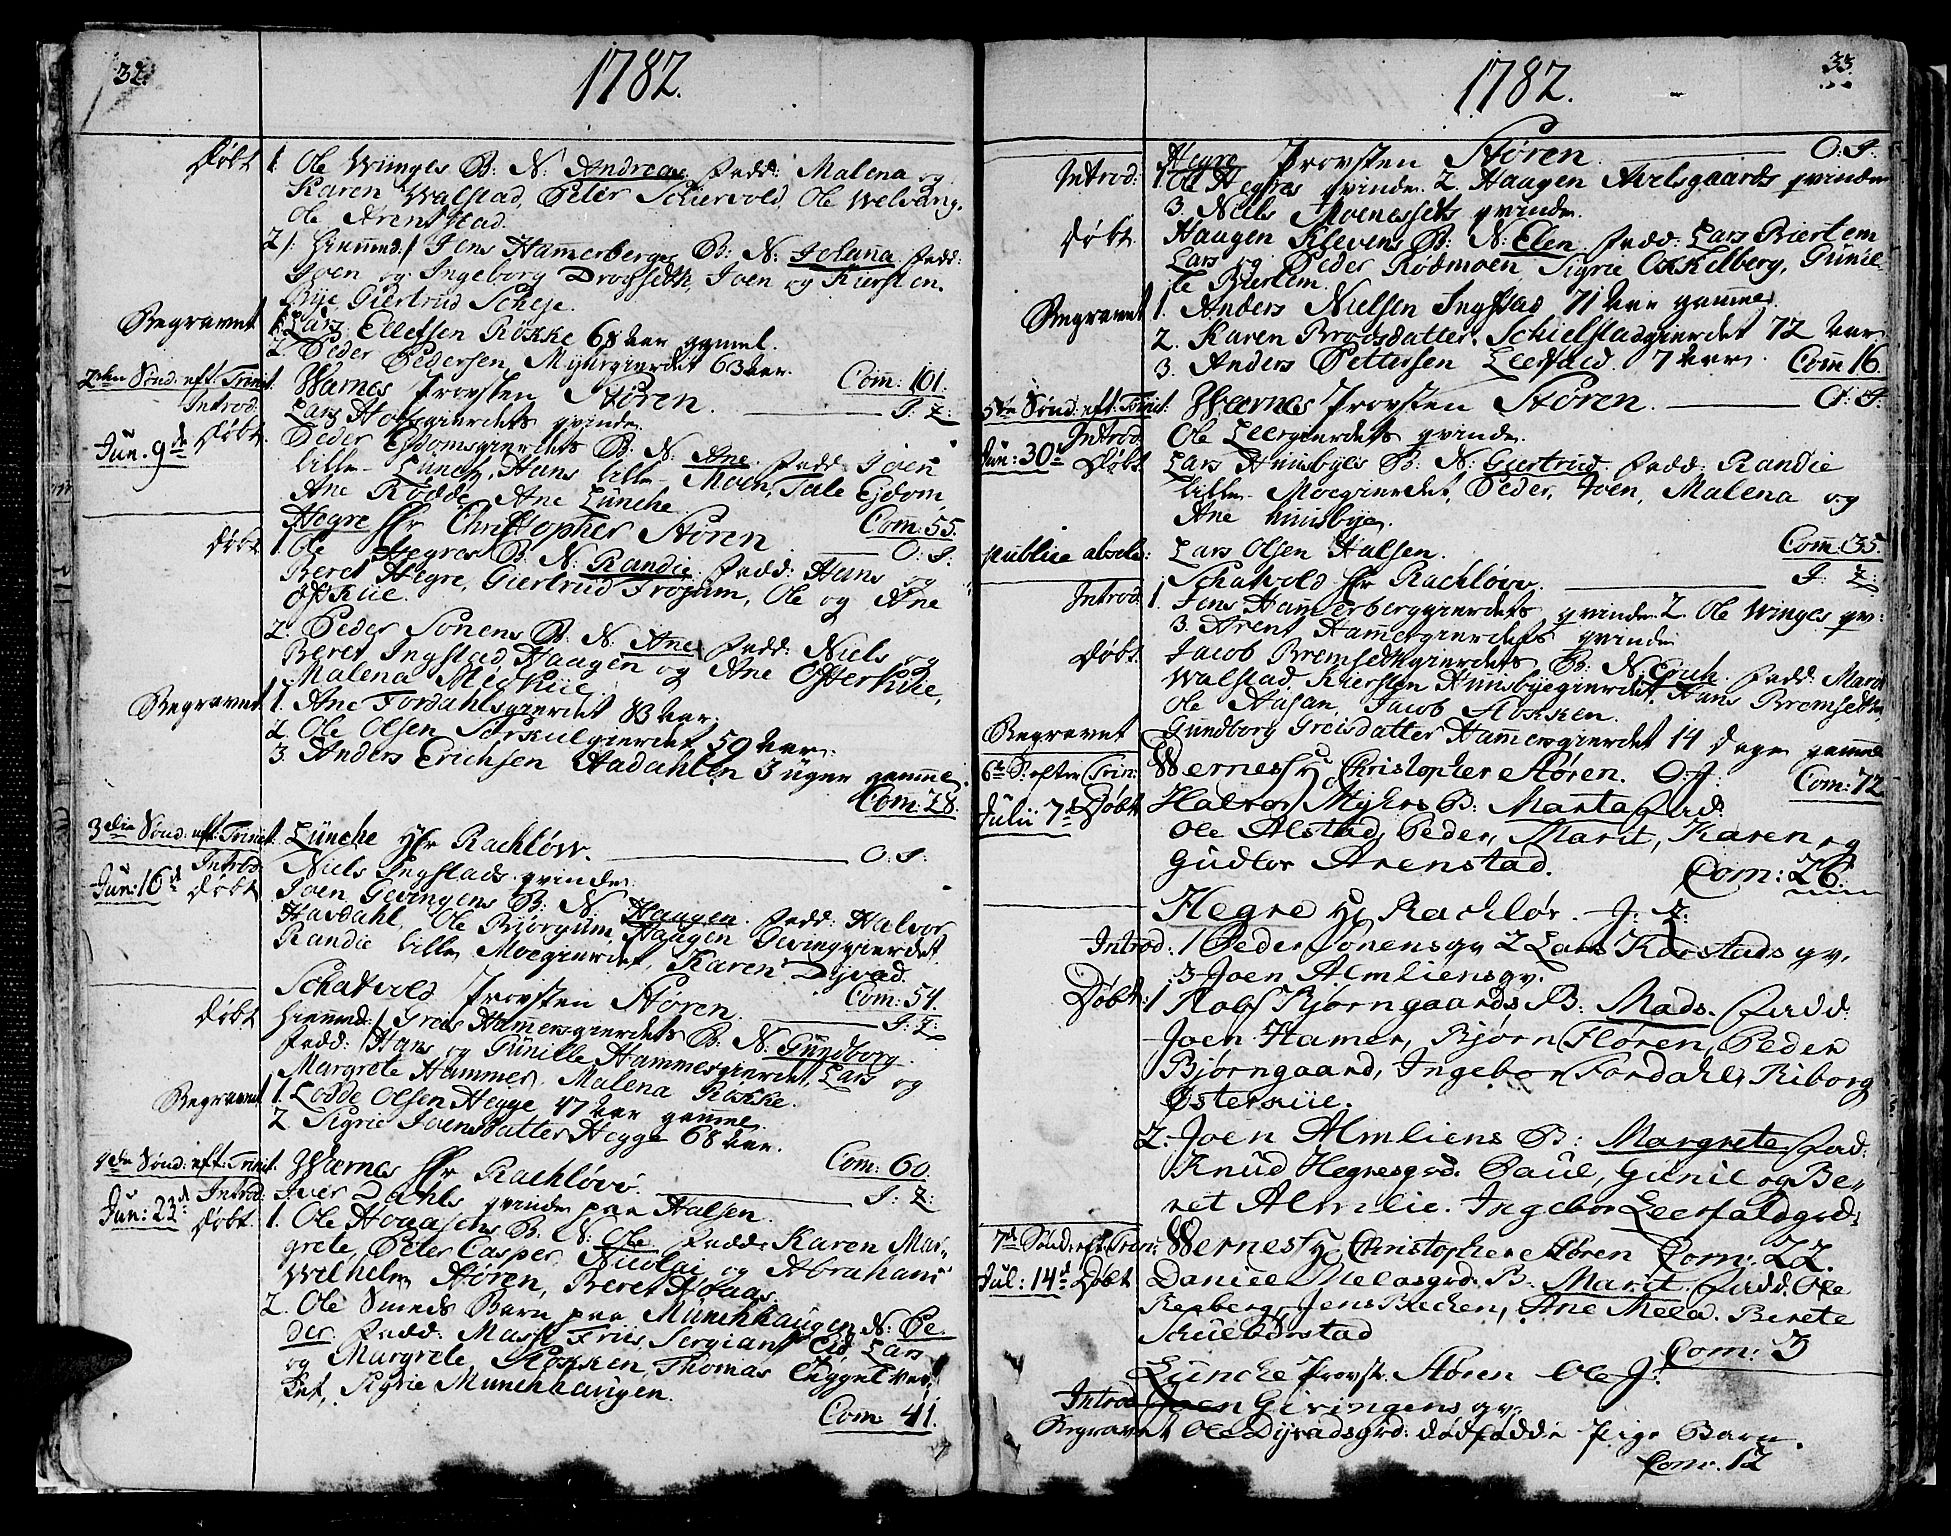 32.
1782.
Døbt 1. Ole Winges B: N: Andreas. Fadd: Malena og
Karen Walstad, Peter Schiervold, Ole Welvang,
Ole Arenstad.
2/: hiemmed:/ Jens Hammerberges B: N: Johanna. Fadd:
Joen og Ingeborg Drogseth, Joen og Kiersten
Bye, Giertrud Scheje.
Begravet 1. Lars Ellefsen Røkke 68 Aar gammel.
2. Peder Pedersen Myhrgierdet 63 Aar.
Com: 101.
2den Sønd: eft: Trinit: Wærnes Provsten Støren. J: Z:
Introd: Lars Hofsgierdets qvinde.
Jun. 9de Døbt. Peder Ejdomsgierdets B: N: Ane. Fadd: Joen
lille- Lunch, Hans lille- Moen, Tale Ejdom,
Ane Rødde, Ane Lunche.
Com: 55.
Hegre Hr Christopher Støren O: J:
Døbt 1. Ole Hegres B: N: Randie. Fadd: Hans og
Beret Hegre, Giertrud Trojam, Ole og Ane
Øfskue.
2. Peder Sonens B: N: Ane. Fadd: Niels og
Beret Ingstad, Haagen og Ane Østerkiie,
Malena Mickiie.
Begravet 1. Ane Fordahlsgierdet 83 Aar.
2. Ole Olsen Sorkulgierdet 59 Aar.
3. Anders Erichsen Aadahlen 3 uger gamme.
Com: 28.
3die Sønd: eft: Trinit: Lünche Hr Rachløw. O: J:
Introd: Niels Ingstads qvinde.
Jun: 16d Døbt Joen Gevingens B: N: Haagen. Fadd: Halvor
Hasdahl, Ole Bjørgum, Haagen Gevinggierdet,
Randie lille Moegierdet, Karen Dyvad.
Com: 54.
Schatvold Provsten Støren. J: Z:
Døbt hiemmed:/ Greis Hammersgierdets B: N: Gundborg.
Fadd: Hans og Gunille Hammersgierdet, Lars og
Margrete Hammer, Malena Røkke.
Begravet 1. Lodde Olsen Hegge 47 Aar gammel.
2. Sigrie Joensdatter Hegge 68 Aar.
Com: 60.
4de Sønd: eft: Trinit: Wærnes Hr Rachløw. J: Z:
Introd: Iver Dahls qvinde paa Halsen.
Jun: 23d Døbt. 1. Ole Hoaasens B: N: Ole. Fadd: Karen Mar-
grete, Peter Casper, Nicolai og Abraham
Wilhelm Støren, Beret Hoaas.
2. Ole Smeds Barn paa Münchhaugen N: Pe-
der. Fadd: Mass Friis, Sergiant Eid, Lars
og Margrete Stokken, Thomas
Sigrie Münchhaugen.
Com: 41.
33.
1782.
Hegre Provsten Støren. O: J:
Introd: 1. Ole Hegres qvinde. 2. Haagen Avelsgaards qvinde
3. Niels Moenessets qvinde.
Døbt. Haagen Klevens B: N: Elen. Fadd: Lars Biertem
Lars og Peder Rødmoen, Sigrie Okkelberg, Gunil-
le Biertem.
Begravet 1. Anders Nielsen Ingstad 71 Aar gammel.
2. Karen Brodsdatter Schielstadgierdet 72 Aar.
3. Anders Pettersen Leerfald 7 Aar. Com 16.
5te Sønd: eft: Trinit: Wærnes Provsten Støren. O: J:
Introd. Ole Leergierdets qvinde.
Jun: 30d Døbt. Lars Huusbyes B: N: Giertrud. Fadd: Randie
lille- Moegierdet, Peder, Joen, Malena og
Ane Huusbye.
publice absolv: Lars Olsen Halsen. Com: 35.
Schatvold Hr Rachløw. J: Z:
Introd. 1. Jens Hammerberggierdets qvinde. 2. Ole Winges qv:
3. Arent Hammergierdets qvinde
Døbt. Jacob Bremsethgierdets B: N: Erich. Fadd: Marit
Walstad, Kiersten Huusbyegierdet, Hans Bremseth
Ole Aasan, Jacob Stokken.
Begravet Gundborg Greisdatter Hammersgierdet 14 Dage gamme
Com: 72
6te S: efter Trin: Wernes Hr Christopher Støren. O: J:
Julii 7d Døbt Halvor Myhrs B: Marta Fad:
Ole Alstad, Peder, Marit, Karen og
Gudlor Arenstad. Com: 26.
Hegre Hr Rachløv. J: Z:
Introd: 1 Peder Sonens qv 2 Lars Karstads qv.
3 Joen Almliens qv.
Døbt: 1 Rolf Bjørngaards B: Mads. Fadd:
Joen Hamer, Bjørn Fløren, Peder
Bjørngaard, Ingebor Fordahl, Riborg
Østerkiie.
2. Joen Almliens B: Margrete Fad:
Knud Hegresgrd. Paul, Gunil og Be-
ret Almlie. Ingebor Leerfaldgrd:
7de Sønd: eft: Trin: Wernes Hr Christopher Støren Com: 22.
Jul: 14d Døbt Daniel Melasgrds B: Marit. Fadd: Ole
Renberg, Jens Becken, Ane Mela. Berete
Schielstad
Com: 3
Lunche Provst. Støren O: J:
Introd Joen Givingens qv.
Begravet Ole Dyvadsgrd: dødfødde Pige Barn.
Com: 12